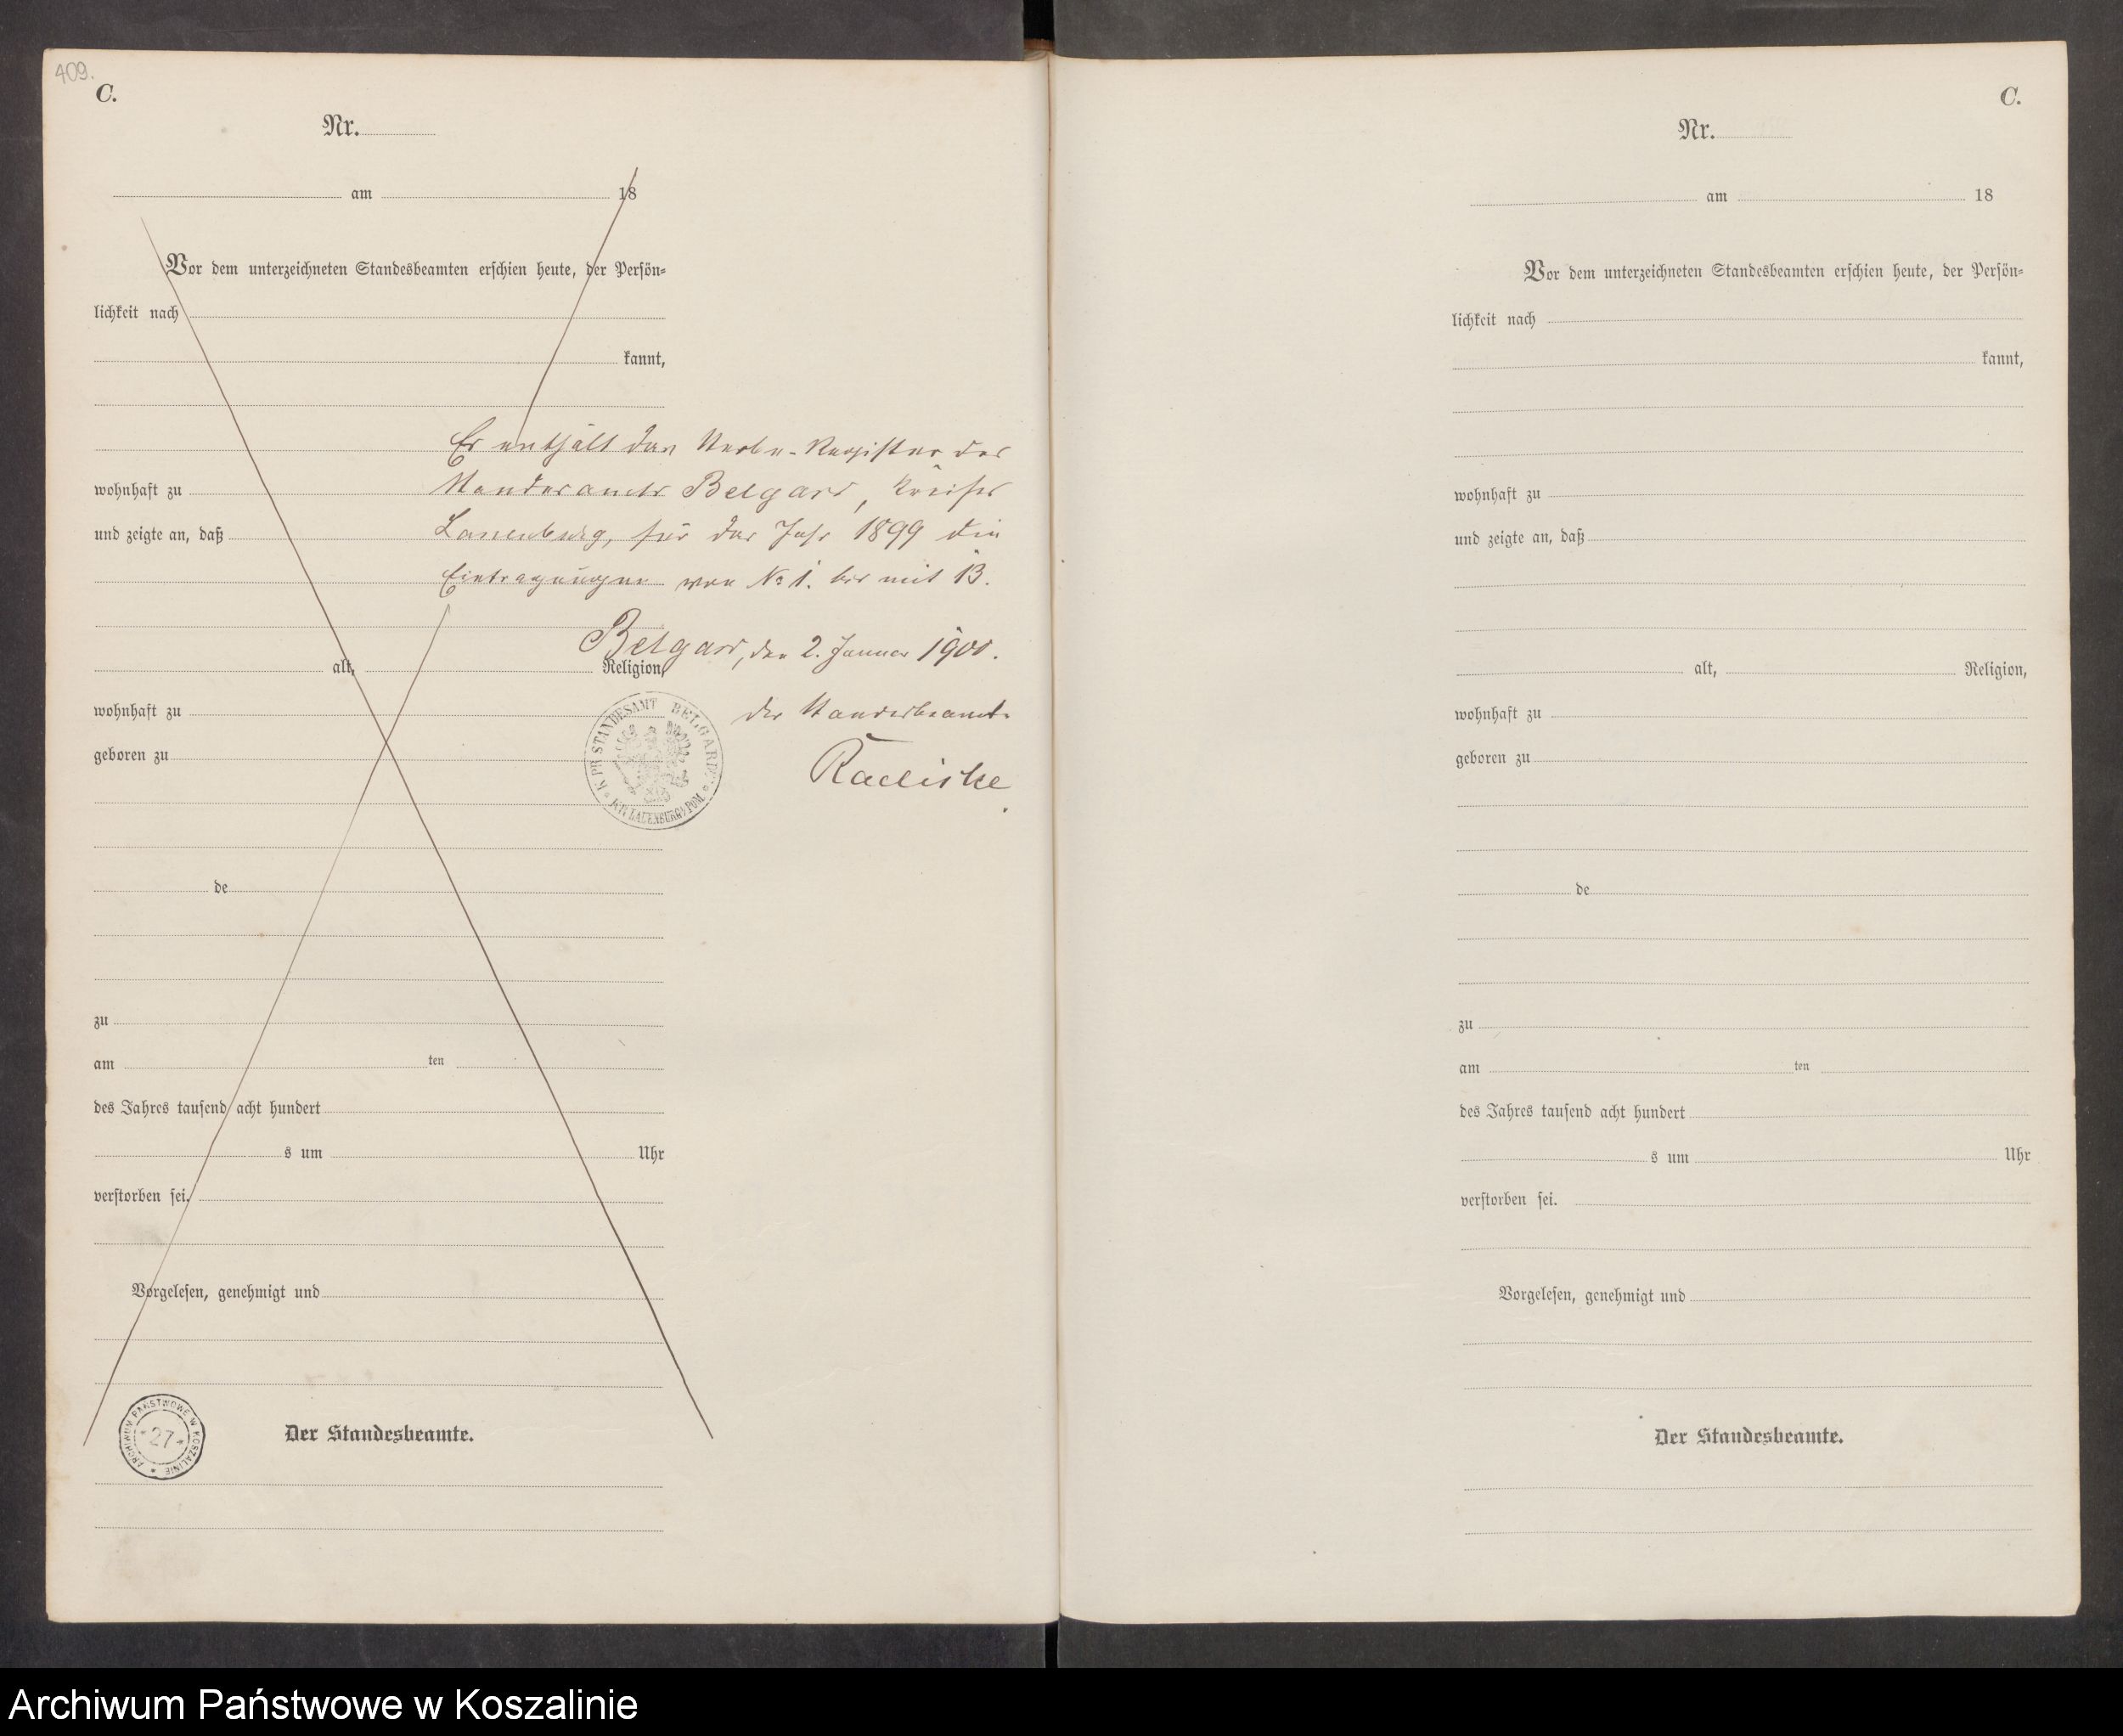 409.
C.
Nr.
am 18
Vor dem unterzeichneten Standesbeamten erschien heute, der Persön-
lichkeit nach
kannt,
Es enthält das Sterbe-Register des
wohnhaft zu Standesamts Belgard, Kreises
und zeigte an, daß Lauenburg, für das Jahr 1899 die
Eintragungen von No 1. bis mit 13.
Belgard, den 2. Januar 1900.
alt, Religion,
wohnhaft zu
der Standesbeamte
geboren zu
K. PR. STANDESAMT BELGARD
KR. LAUENBURG i/POM
de
zu
am ten
des Jahres tausend acht hundert
s um Uhr
verstorben sei.
Vorgelesen, genehmigt und
Der Standesbeamte.
ARCHIWUM PAŃSTWOWE W KOSZALINIE
27
C.
Nr.
am 18
Vor dem unterzeichneten Standesbeamten erschien heute, der Persön-
lichkeit nach
kannt,
wohnhaft zu
und zeigte an, daß
alt, Religion,
wohnhaft zu
geboren zu
de
zu
am ten
des Jahres tausend acht hundert
s um Uhr
verstorben sei.
Vorgelesen, genehmigt und
Der Standesbeamte.
Archiwum Państwowe w Koszalinie